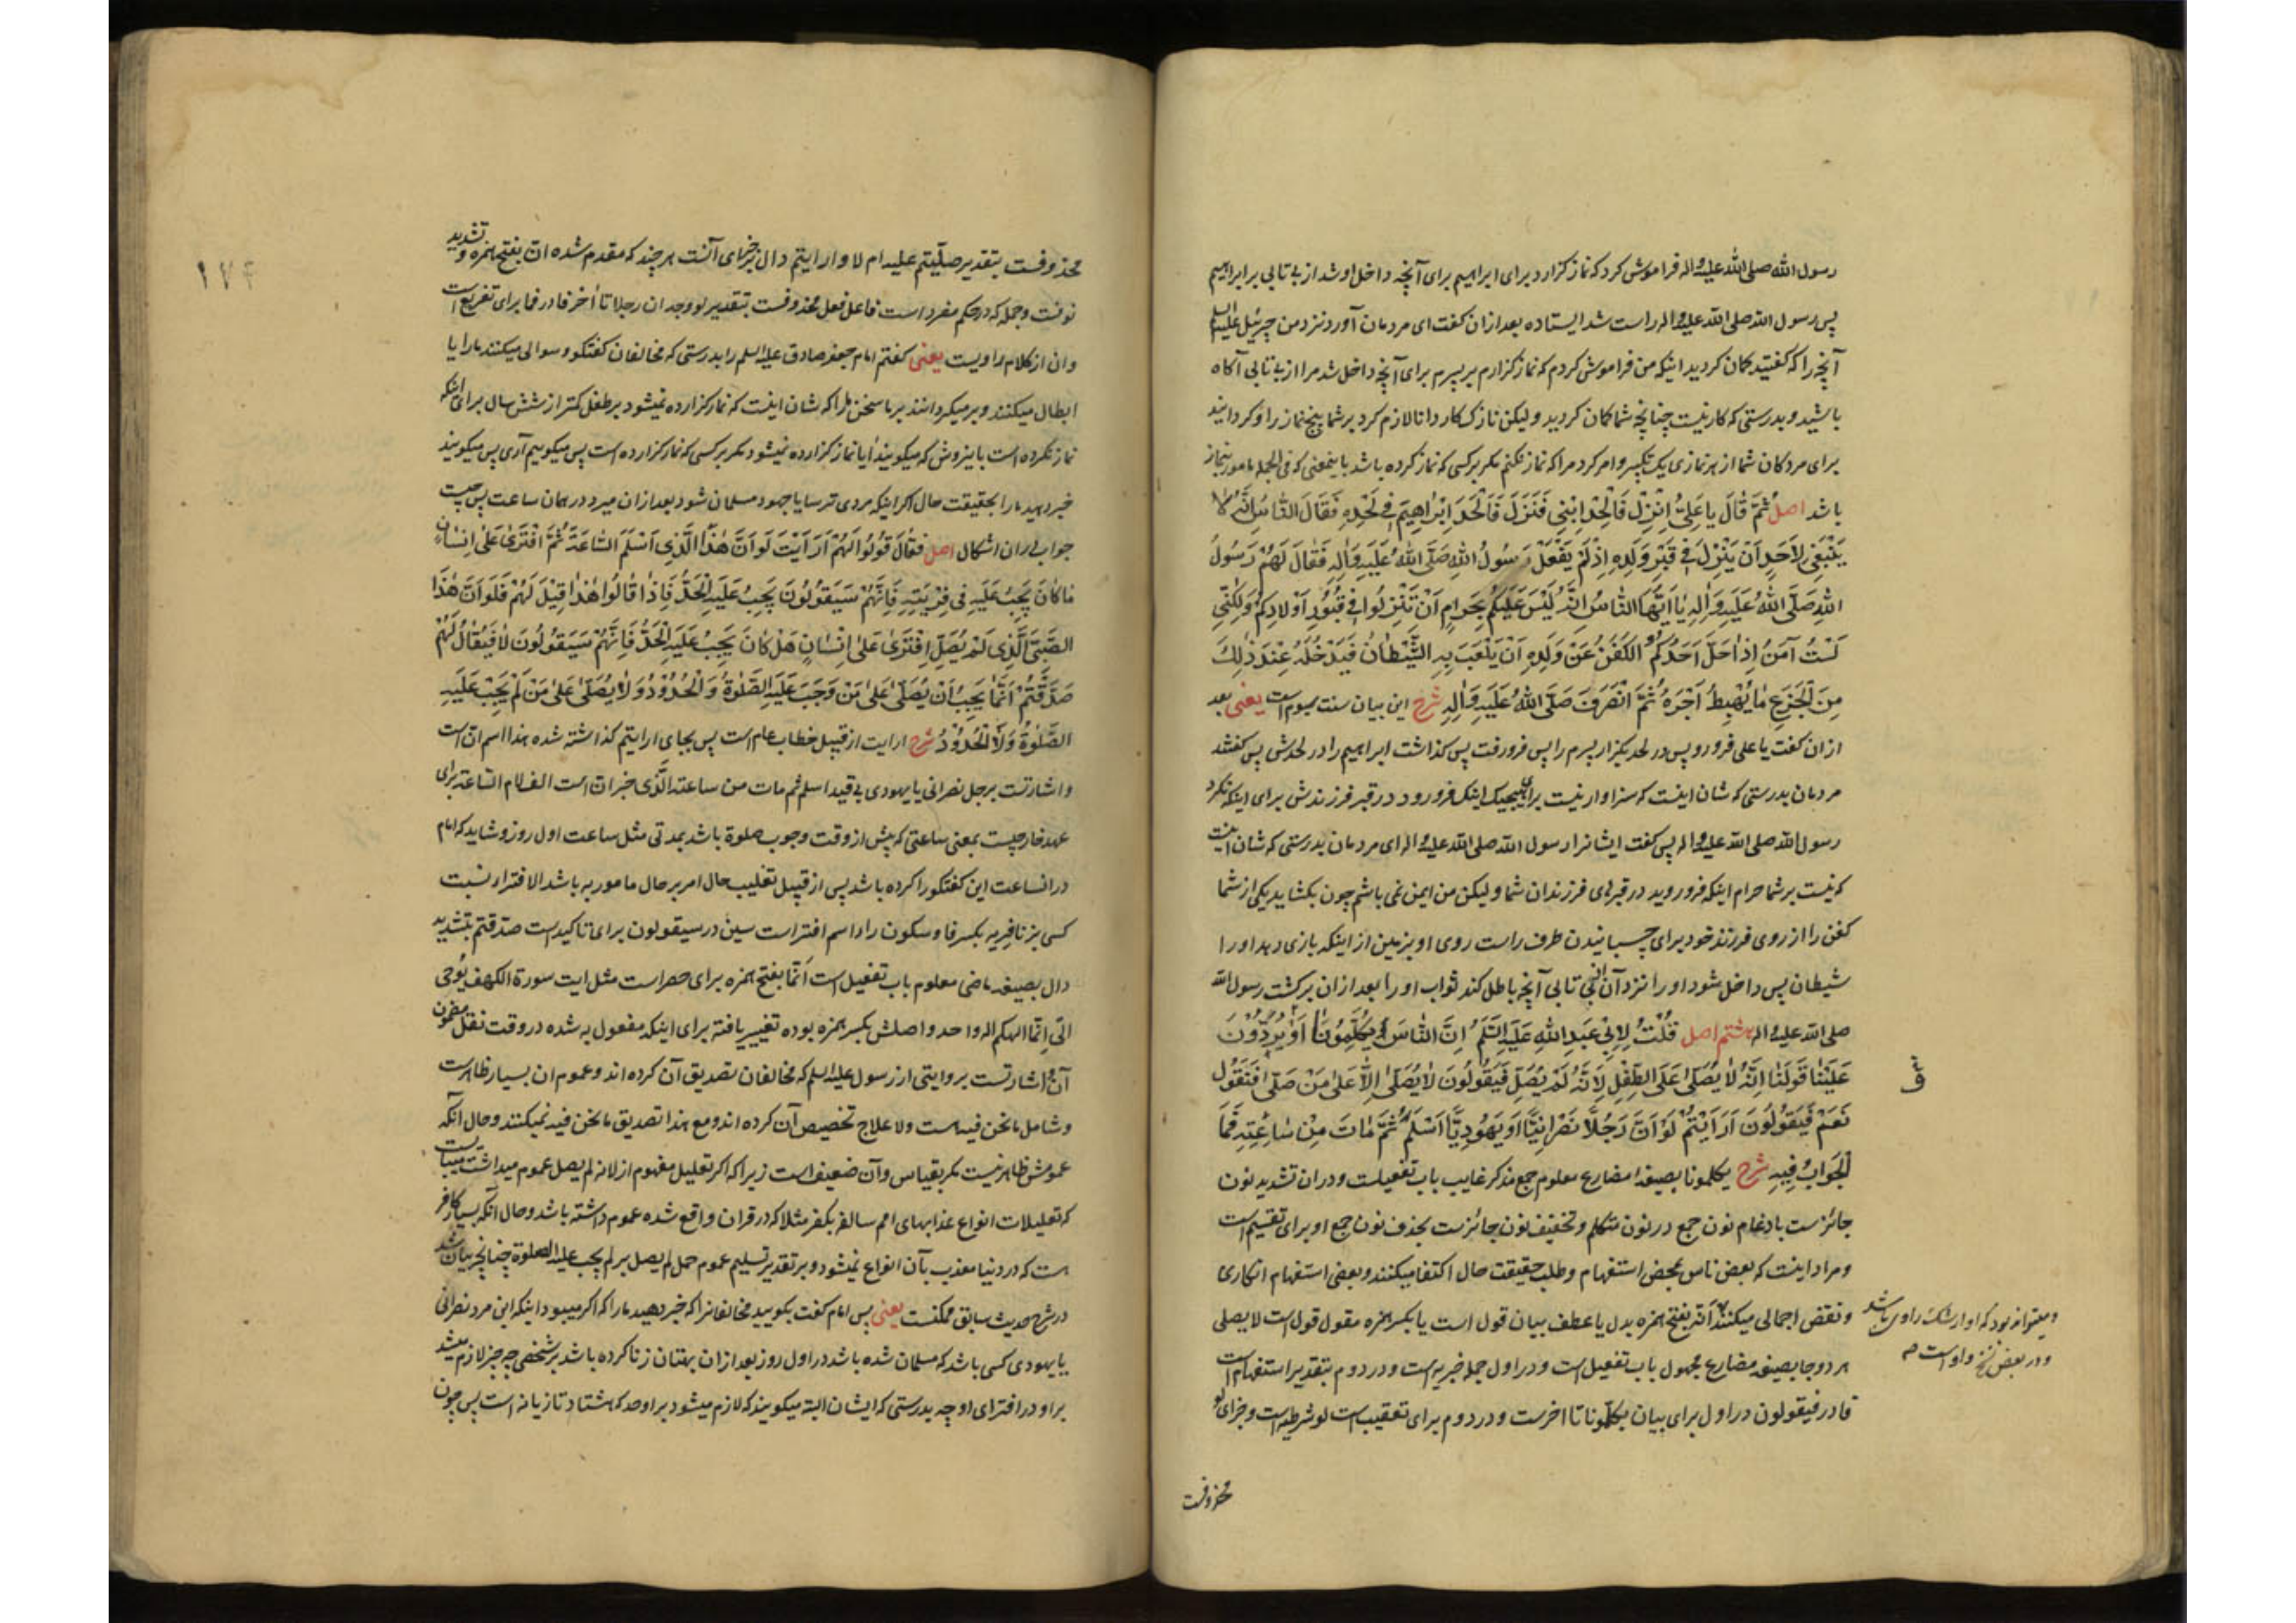 رسول الله صلی الله علیه واله فراموش کرد که نماز کزارد برای ابراهیم برای آنچه داخل او شد از بی تابی بر ابراهیم
پس رسول الله صلی الله علیه واله راست شد ایستاده بعد ازان کفت ای مردمان آورد نزد من جبرئیل علیه السلم
آنچه را که کفتید کمان کردید اینکه من فراموش کردم که نماز کزارم بر پسرم برای آنچه داخل شد مرا از بی تابی آکاه
باشید و بدرستی که کار نیست چنانچه شما کمان کردید ولیکن نازک کار دانا لازم کرد بر شما پنج نماز را و کردانید
برای مردکان شما از هر نمازی یک تکبیر و امر کرد مرا که نماز نکنم مکر بر کسی که نماز کرده باشد باینمعنی که فی الجمله مامور بنماز
باشد اصل ثُمَّ قٰالَ یا عَلِیُّ اِنْزِلْ فَاَلْحِدْ اِبْنِی فَنَزَلَ فَاَلْحَدَ اِبْرٰاهِیمَ فِی لَحْدِهِ فَقٰالَ النّٰاسُ اِنَّهُ لٰا
یَنْبَغِی لِاَحَدٍ اَنْ یَنْزِلَ فِی قَبْرِ وَلَدِهِ اِذْ لَمْ یَفْعَلْ رَسُولُ اللهِ صَلَّی اللهُ عَلَیْهِ وَاٰلِهِ فَقٰالَ لَهُمْ رَسُولُ
اللهِ صَلَّی اللهُ عَلَیْهِ وَاٰلِهِ یٰا اَیُّهَا النّٰاسُ اِنَّهُ لَیْسَ عَلَیْکُمْ بِحَرٰامٍ اَنْ تَنْزِلُوا فِی قُبُورِ اَوْلٰادِکُمْ وَلٰکِنِّی
لَسْتُ آمَنُ اِذٰا حَلَّ اَحَدُکُمُ الْکَفَنَ عَنْ وَلَدِهِ اَنْ یَلْعَبَ بِهِ الشَّیْطٰانُ فَیَدْخُلَهُ عِنْدَ ذٰلِکَ
مِنَ الْجَزَعِ مٰا یُحْبِطُ اَجْرَهُ ثُمَّ انْصَرَفَ صَلَّی اللهُ عَلَیْهِ وَاٰلِهِ شرح این بیان سنت سوم است یعنی بعد
ازان کفت یا علی فرو رو پس در لحد بکزار پسرم را پس فرو رفت پس کذاشت ابراهیم را در لحدش پس کفتند
مردمان بدرستی که شان اینست که سزاوار نیست برای هیچیک اینکه فرو رود در قبر فرزندش برای اینکه نکرد
رسول الله صلی الله علیه واله پس کفت ایشانرا رسول الله صلی الله علیه واله ای مردمان بدرستی که شان اینست
که نیست بر شما حرام اینکه فرو روید در قبرهای فرزندان شما ولیکن من ایمن نمی باشم چون بکشاید یکی از شما
کفن را از روی فرزند خود برای چسبانیدن طرف راست روی او بزمین از اینکه بازی دهد او را
شیطان پس داخل شود او را نزد آن از بی تابی آنچه باطل کند ثواب او را بعد ازان برکشت رسول الله
صلی الله علیه واله هشتم اصل قُلْتُ لِاَبِی عَبْدِ اللهِ عَلَیْهِ السَّلَمُ اِنَّ النّٰاسَ یُکَلِّمُونٰا اَوْ یَرُدُّونَ
عَلَیْنٰا قَوْلَنٰا اِنَّهُ لٰا یُصَلّٰی عَلَی الطِّفْلِ لِاَنَّهُ لَمْ یُصَلِّ فَیَقُولُونَ لٰا یُصَلّٰی اِلّٰا عَلٰی مَنْ صَلّٰی فَنَقُولُ
نَعَمْ فَیَقُولُونَ اَرَاَیْتُمْ لَوْ اَنَّ رَجُلًا نَصْرٰانِیًّا اَوْ یَهُودِیًّا اَسْلَمَ ثُمَّ مٰاتَ مِنْ سٰاعَتِهِ فَمَا
الْجَوٰابُ فِیهِ شرح یکلمونا بصیغه مضارع معلوم جمع مذکر غایب باب تفعیلست و دران تشدید نون
جائزست بادغام نون جمع در نون متکلم و تخفیف نون جائزست بحذف نون جمع او برای تقسیم است
و مراد اینست که بعض ناس بمحض استفهام و طلب حقیقت حال اکتفا میکنند و بعض استفهام انکاری
و نقض اجمالی میکنند انّه بفتح همزه بدل یا عطف بیان قول است یا بکسر همزه مقول قول است لا یصلی
هر دو جا بصیغه مضارع مجهول باب تفعیل است و در اول جمله خبریه است و در دوم بتقدیر استفهام است
فا در فیقولون در اول برای بیان یکلّمونا تا اخرست و در دوم برای تعقیب است لو شرطیه است و جزای لو
محذوفست
ومیتواند بود که او از شک راوی باشد
و در بعض نسخ واو است
۱۷۴
محذوفست بتقدیر صلّیتم علیه ام لا و ارایتم دال بر جزای آنست هر چند که مقدم شده انّ بفتح همزه و تشدید
نونست و جمله که در حکم مفرد است فاعل فعل محذوفست بتقدیر لو وجد ان رجلا تا آخر فا در فما برای تفریع است
و ان از کلام راویست یعنی کفتم امام جعفر صادق علیه السلم را بدرستی که مخالفان کفتکو و سوالی میکنند ما را یا
ابطال میکنند و برمیکردانند بر ما سخن ما را که شان اینست که نماز کزارده نمیشود بر طفل کمتر از شش سال برای اینکه
نماز نکرده است باینروش که میکویند ایا نماز کزارده نمیشود مکر بر کسی که نماز کزارده است پس میکوییم آری پس میکویند
خبر دهید ما را بحقیقت حال اکر اینکه مردی ترسا یا جهود مسلمان شود بعد ازان میرد در همان ساعت پس چیست
جواب در ان اشکال اصل فَقٰالَ قُولُوا لَهُمْ اَرَاَیْتَ لَوْ اَنَّ هٰذَا الَّذِی اَسْلَمَ السّٰاعَةَ ثُمَّ افْتَرٰی عَلٰی اِنْسٰانٍ
مٰا کٰانَ یَجِبُ عَلَیْهِ فِی فِرْیَتِهِ فَاِنَّهُمْ سَیَقُولُونَ یَجِبُ عَلَیْهِ الْحَدُّ فَاِذٰا قٰالُوا هٰذٰا قِیلَ لَهُمْ فَلَوْ اَنَّ هٰذَا
الصَّبِیَّ الَّذِی لَمْ یُصَلِّ اِفْتَرٰی عَلٰی اِنْسٰانٍ هَلْ کٰانَ یَجِبُ عَلَیْهِ الْحَدُّ فَاِنَّهُمْ سَیَقُولُونَ لٰا فَیُقٰالُ لَهُمْ
صَدَّقْتُمْ اَنَّمٰا یَجِبُ اَنْ یُصَلّٰی عَلٰی مَنْ وَجَبَ عَلَیْهِ الصَّلٰوةُ وَالْحُدُودُ وَلٰا یُصَلّٰی عَلٰی مَنْ لَمْ یَجِبْ عَلَیْهِ
الصَّلٰوةُ وَلَا الْحُدُودُ شرح ارایت از قبیل خطاب عام است پس بجای ارایتم کذاشته شده هذا اسم انّ است
و اشارتست برجل نصرانی یا یهودی بی قید اسلم ثم مات من ساعته الّذی خبر انّ است الف لام الساعة برای
عهد خارجیست بمعنی ساعتی که پیش از وقت وجوب صلوة باشد بمدتی مثل ساعت اول روز و شاید که امام
در انساعت این کفتکو را کرده باشد پس از قبیل تغلیب حال امر بر حال مامور به باشد الافتراء نسبت
کسی بزنا فریه بکسر فا و سکون را اسم افتراست سین در سیقولون برای تاکیدست صدّقتم بتشدید
دال بصیغه ماضی معلوم باب تفعیل است اَنّما بفتح همزه برای حصر است مثل ایت سورة الکهف یُوحی
الیّ انّما الهکم اله واحد و اصلش بکسر همزه بوده تغییر یافته برای اینکه مفعول به شده در وقت نقل مضمون
آن و اشارتست بروایتی از رسول علیه السلم که مخالفان تصدیق آن کرده اند و عموم ان بسیار ظاهرست
و شامل ما نحن فیه است و لا علاج تخصیص آن کرده اند و مع هذا تصدیق ما نحن فیه نمیکنند و حال آنکه
عمومش ظاهر نیست مکر بقیاس و آن ضعیف است زیرا که اکر تعلیل مفهوم از لانه لم یصل عموم میداشت میبایست
که تعلیلات انواع عذابهای امم سالفه بکفر مثلا که در قران واقع شده عموم داشته باشد و حال آنکه بسیار کافر
هست که در دنیا معذب بآن انواع نمیشود و بر تقدیر تسلیم عموم حمل لم یصل بر لم یجب علیه الصلوة چنانچه بیان شد
در شرح حدیث سابق ممکنست یعنی پس امام کفت بکویید مخالفانرا که خبر دهید ما را که اکر میبود اینکه این مرد نصرانی
یا یهودی کسی باشد که مسلمان شده باشد در اول روز بعد ازان بهتان زنا کرده باشد بر شخصی چه چیز لازم میشد
بر او در افترای او چه بدرستی که ایشان البته میکویند که لازم میشود بر او حد که هشتاد تازیانه است پس چون